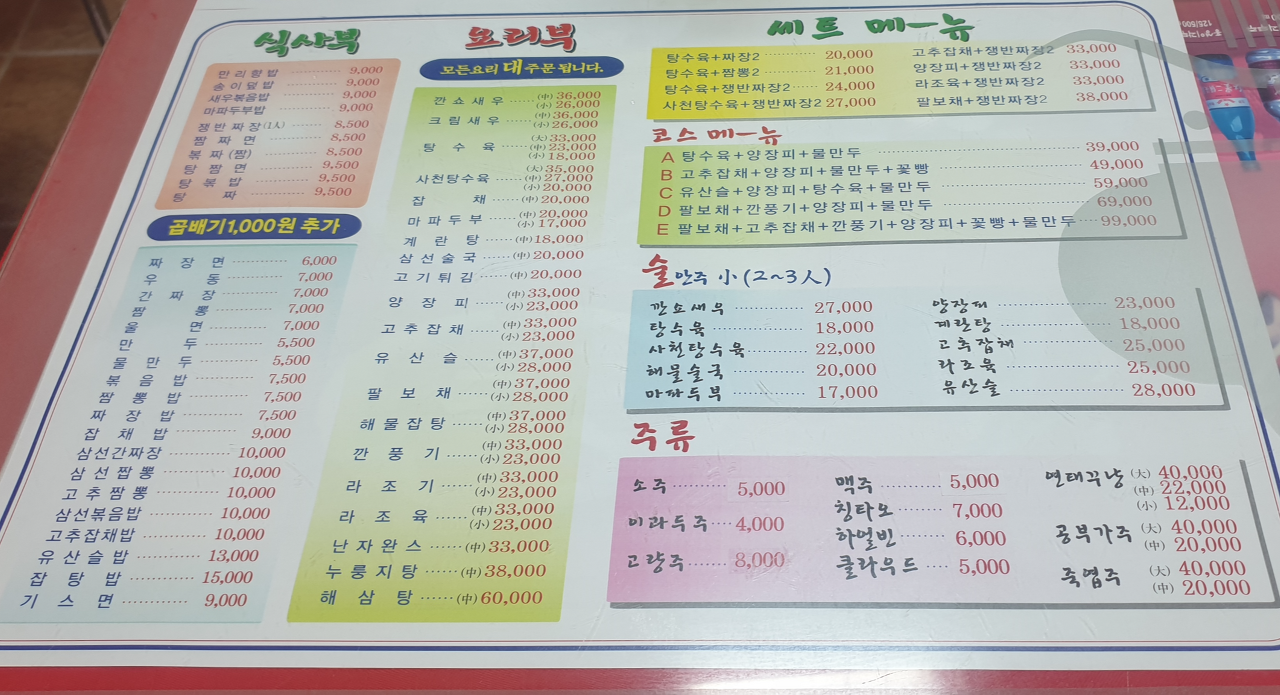 식사부
만리향밥 9,000
송이덮밥 9,000
새우볶음밥 9,000
마파두부밥 9,000
쟁반짜장(1人) 8,500
짬짜면 8,500
볶짜(짬) 8,500
탕짬면 9,500
탕볶밥 9,500
탕짜 9,500
곱배기1,000원 추가
짜장면 6,000
우동 7,000
간짜장 7,000
짬뽕 7,000
울면 7,000
만두 5,500
물만두 5,500
볶음밥 7,500
짬뽕밥 7,500
짜장밥 7,500
잡채밥 9,000
삼선간짜장 10,000
삼선짭뽕 10,000
고추짬뽕 10,000
삼선볶음밥 10,000
고추잡채밥 10,000
유산슬밥 13,000
잡탕밥 15,000
기스면 9,000
요리부
모든요리 대 주문 됩니다.
깐쇼새우 (中) 36,000
(小) 26,000
크림새우 (中) 36,000
(小) 26,000
탕수육 (大) 33,000
(中) 23,000
(小) 18,000
사천탕수육 (大) 35,000
(中) 27,000
(小) 20,000
잡채 (中) 20,000
마파두부 (中) 20,000
(小) 17,000
계란탕 (中) 18,000
삼선술국 (中) 20,000
고기튀김 (中) 20,000
양장피 (中) 33,000
(小) 23,000
고추잡채 (中) 33,000
(小) 23,000
유산슬 (中) 37,000
(小) 28,000
팔보채 (中) 37,000
(小) 28,000
해물잡탕 (中) 37,000
(小) 28,000
깐풍기 (中) 33,000
(小) 23,000
라조기 (中) 33,000
(小) 23,000
라조육 (中) 33,000
(小) 23,000
난자완스 (中) 33,000
누룽지탕 (中) 38,000
해삼탕 (中) 60,000
세트 메뉴
탕수육+짜장2 20,000
탕수육+짬뽕2 21,000
탕수육+쟁반짜장2 24,000
사천탕수육+쟁반짜장2 27,000
고추잡채+쟁반짜장2 33,000
양장피+쟁반짜장2 33,000
라조육+쟁반짜장2 33,000
팔보채+쟁반짜장2 38,000
코스 메뉴
A 탕수육+양장피+물만두 39,000
B 고추잡채+양장피+물만두+꽃빵 49,000
C 유산슬+양장피+탕수육+물만두 59,000
D 팔보채+깐풍기+양장피+물만두 69,000
E 팔보채+고추잡채+깐풍기+양장피+꽃빵+물만두 99,000
술안주 小 (2~3人)
깐쇼새우 27,000
탕수육 18,000
사천탕수육 22,000
해물술국 20,000
마파두부 17,000
양장피 23,000
계란탕 18,000
고추잡채 25,000
라조육 25,000
유산슬 28,000
주류
소주 5,000
이과두주 4,000
고량주 8,000
맥주 5,000
칭타오 7,000
하얼빈 6,000
클라우드 5,000
연태꾸냥 (大) 40,000
(中) 22,000
(小) 12,000
공부가주 (大) 40,000
(中) 20,000
죽엽주 (大) 40,000
(中) 20,000